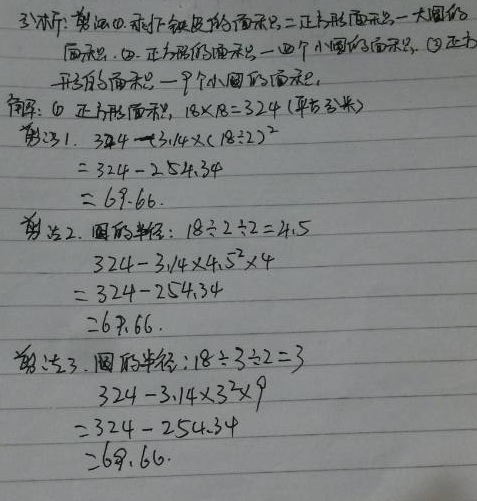 分析:剪法①.剩下铁皮的面积=正方形面积-大圆的
面积.②.正方形的面积-四个小圆的面积.③正方
形的面积-9个小圆的面积.
解:① 正方形面积,18×18=324(平方分米)
剪法1. 324-3.14×(18÷2)²
=324-254.34
=69.66.
剪法2.圆的半径:18÷2÷2=4.5
324-3.14×4.5²×4
=324-254.34
=69.66.
剪法3.圆的半径:18÷3÷2=3
324-3.14×3²×9
=324-254.34
=69.66.